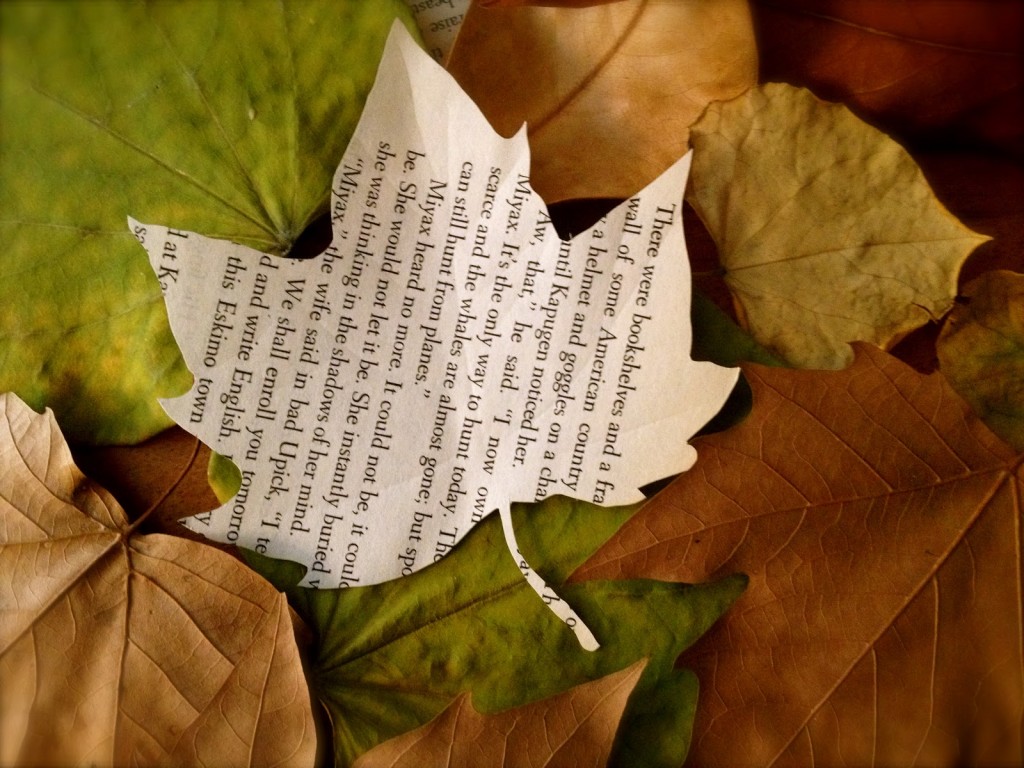 There were bookshelves and a fra
wall of some American country
a helmet and goggles on a cha
until Kapugen noticed her.
"Aw, that," he said. "I now own
Miyax. It's the only way to hunt today. The
scarce and the whales are almost gone; but spo
can still hunt from planes."
Miyax heard no more. It could not be, it could
be. She would not let it be. She instantly buried
she was thinking in the shadows of her mind.
"Miyax," the wife said in bad Upick, "I te
We shall enroll you tomorro
d and write English.
this Eskimo town
d at Ka
beast
raise